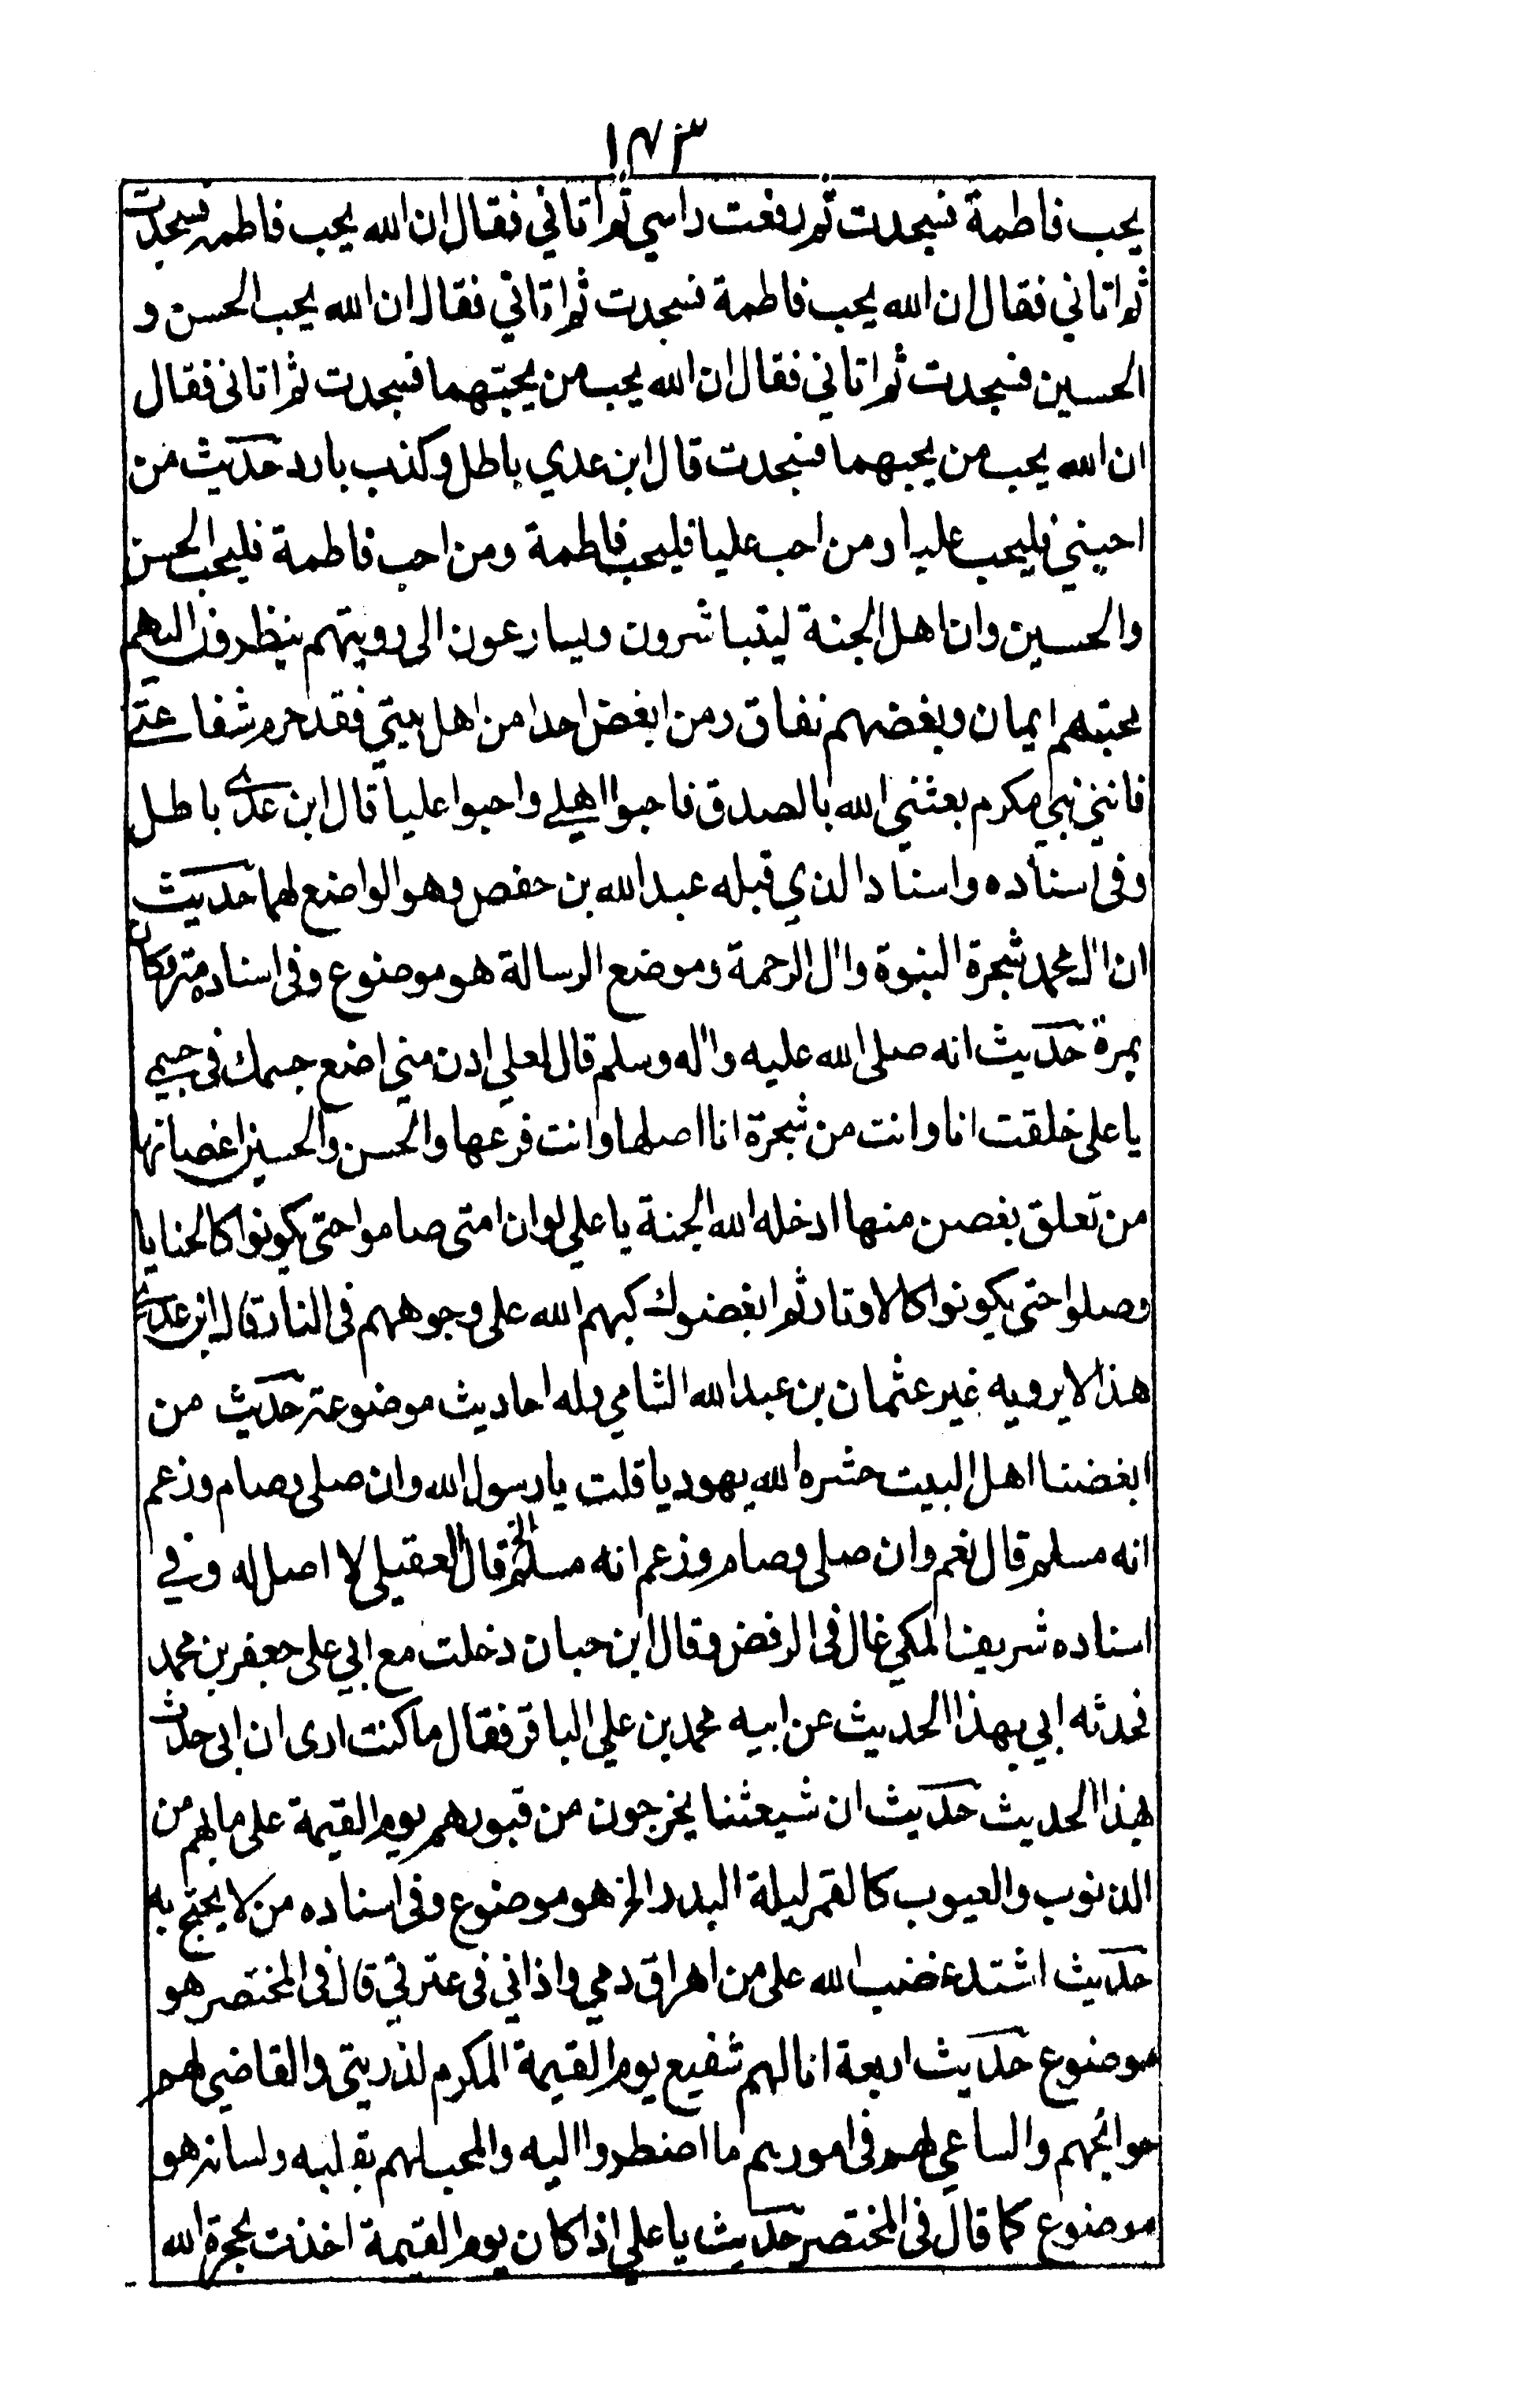 ١٧٣
يحب فاطمة فسجدت ثم رفعت راسي ثم اتاني فقال ان الله يحب فاطمة فسجدت
ثم اتاني فقال ان الله يحب فاطمة فسجدت ثم اتاني فقال ان الله يحب الحسن و
الحسين فسجدت ثم اتاني فقال ان الله يحب من يحبهما فسجدت ثم اتاني فقال
ان الله يحب من يحبهما فسجدت قال ابن عدي باطل وكذب بارد حديث من
احبني فليحب عليا ومن احب عليا فليحب فاطمة ومن احب فاطمة فليحب الحسن
والحسين وان اهل الجنة ليتباشرون ويسارعون الى رويتهم ينظرون اليهم
محبتهم ايمان وبغضهم نفاق ومن ابغض احدا من اهل بيتي فقد حرم شفاعتي
فانني نبي مكرم بعثني الله بالصدق فاحبوا اهلي واحبوا عليا قال ابن عدي باطل
وفى اسناده واسناد الذي قبله عبد الله بن حفص وهو الواضع لهما حديث
ان ال محمد شجرة النبوة وال الرحمة وموضع الرسالة هو موضوع وفى اسناده متروكان
بمرة حديث انه صلى الله عليه واله وسلم قال لعلي ادن مني اضع جسمك فى جسمي
يا على خلقت انا وانت من شجرة انا اصلها وانت فرعها والحسن والحسين اغصانها
من تعلق بغصن منها ادخله الله الجنة يا علي لو ان امتى صاموا حتى يكونوا كالحنايا
وصلوا حتى يكونوا كالاوتار ثم ابغضوك كبهم الله على وجوههم فى النار قال ابن عدي
هذا لا يرويه غير عثمان بن عبد الله الشامي وله احاديث موضوعة حديث من
ابغضنا اهل البيت حشره الله يهوديا قلت يا رسول الله وان صلى وصام وزعم
انه مسلم قال نعم وان صلى وصام وزعم انه مسلم الخ قال العقيلى لا اصل له وفي
اسناده شريفنا المكي غال فى الرفض وقال ابن حبان دخلت مع ابي على جعفر بن محمد
فحدثه ابي بهذا الحديث عن ابيه محمد بن علي الباقر فقال ما كنت ارى ان ابى حدث
بهذا الحديث حديث ان شيعتنا يخرجون من قبورهم يوم القيمة على ما بهم من
الذنوب والعيوب كالقمر ليلة البدر الخ هو موضوع وفى اسناده من لا يحتج به
حديث اشتد غضب الله على من اهراق دمي واذاني فى عترتي قال فى المختصر هو
موضوع حديث اربعة انا لهم شفيع يوم القيمة المكرم لذريتى والقاضي لهم
حوائجهم والساعي لهم فى امورهم ما اضطروا اليه والمحب لهم بقلبه ولسانه هو
موضوع كما قال فى المختصر حديث يا علي اذا كان يوم القيمة اخذت بحجزة الله